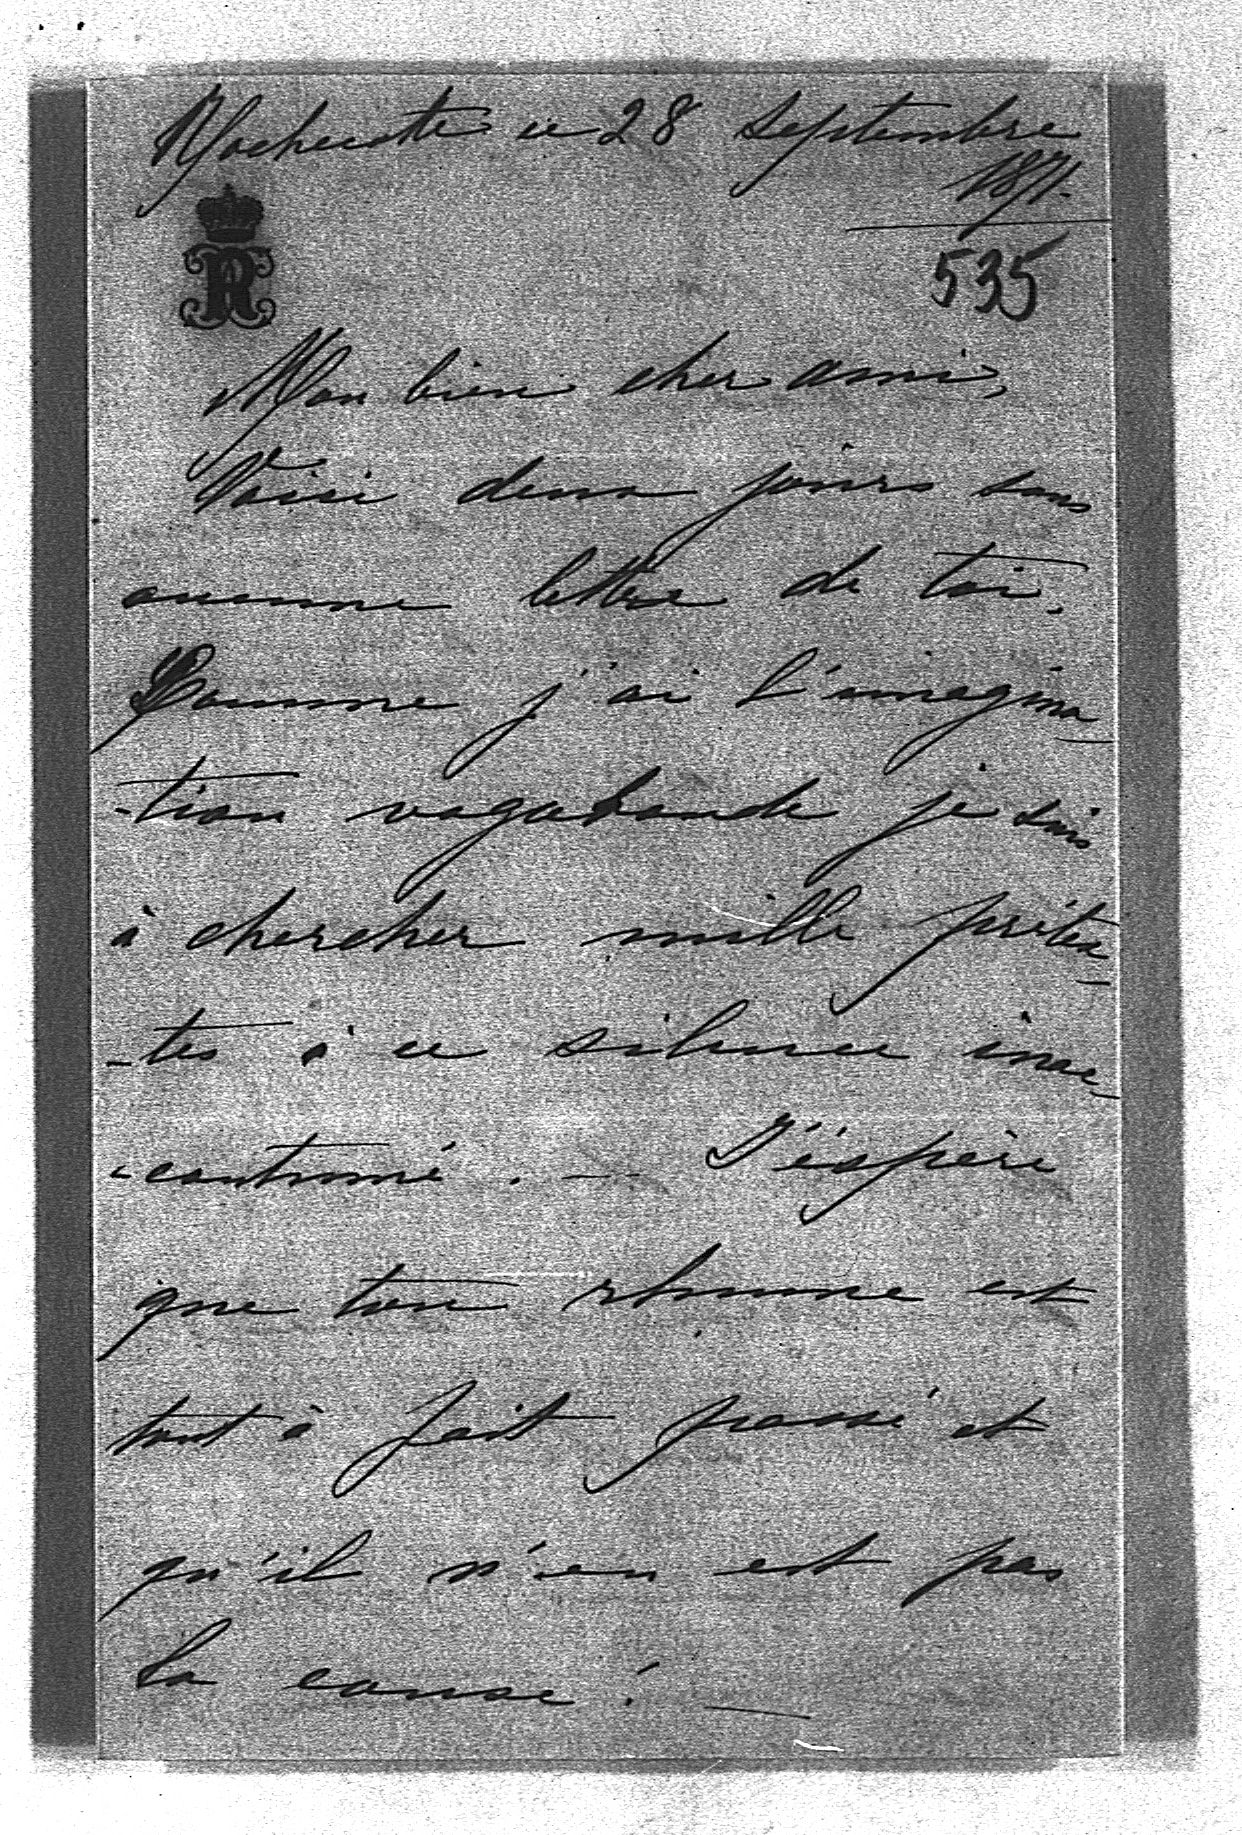 Rochecotte ce 28 septembre
1871.
R
535
Mon bien cher ami,
Voici deux jours sans
aucune lettre de toi.
Comme j'ai l'imagina
-tion vagabonde je suis
à chercher mille prétex
-tes à ce silence inac
-coutumé. — J'éspère
que ton rhume est
tout à fait passé et
qu'il n'en est pas
la cause! —